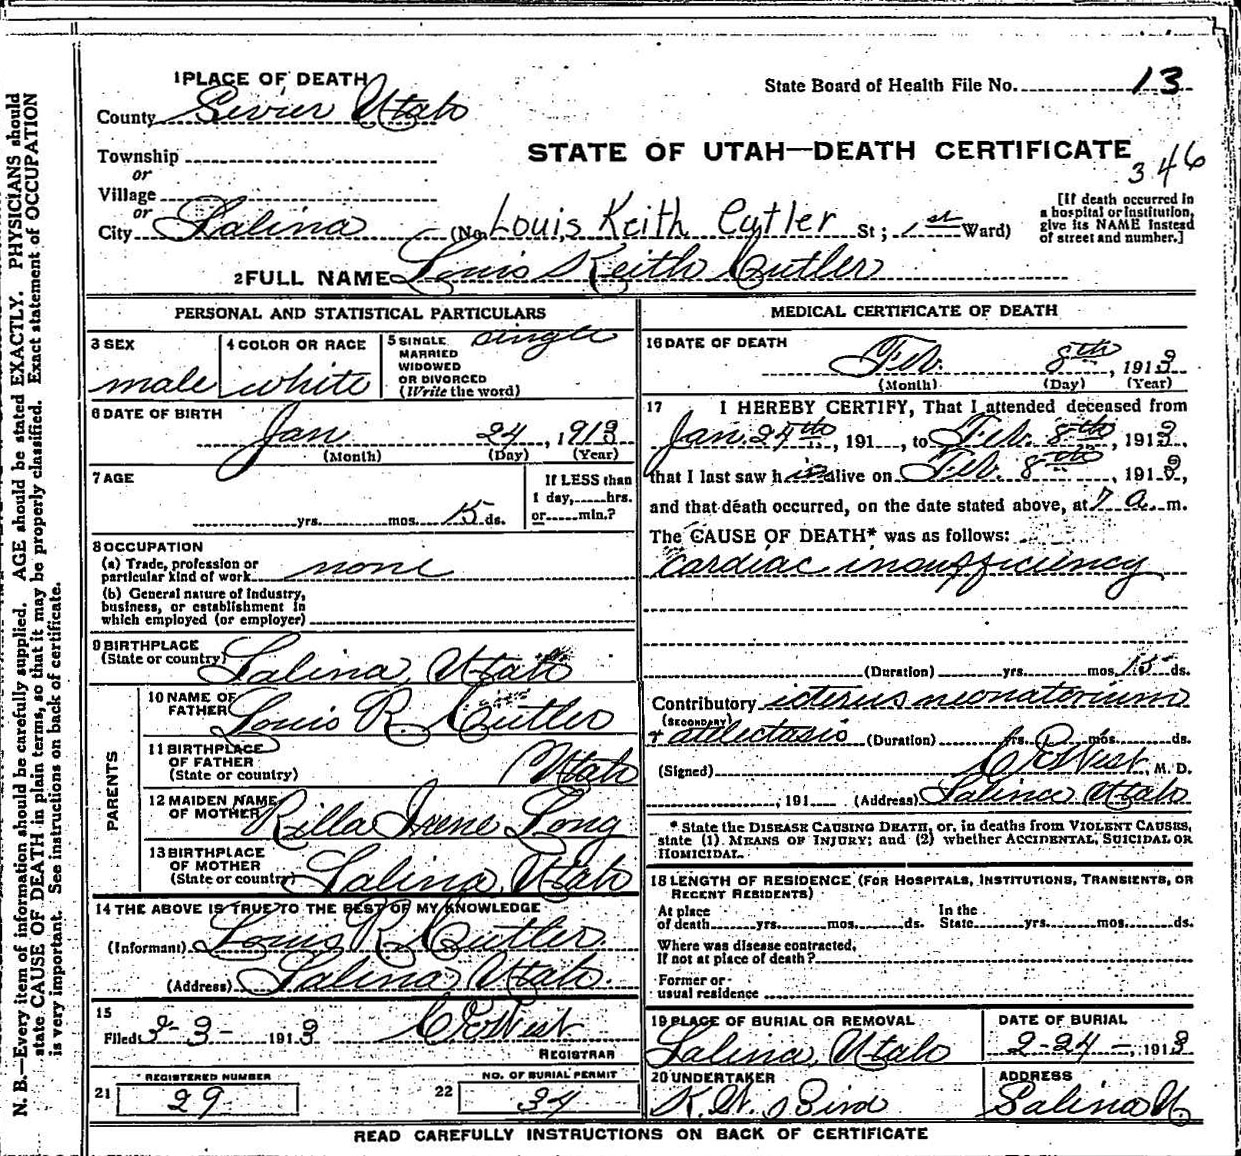 1 PLACE OF DEATH
State Board of Health File No. 13
County Sevier Utah
STATE OF UTAH—DEATH CERTIFICATE
346
Township
or
Village
or
City Salina (No. Louis Keith Cutler St; 1st Ward)
[If death occurred in a hospital or institution, give its NAME instead of street and number.]
2 FULL NAME Louis Keith Cutler
PERSONAL AND STATISTICAL PARTICULARS
3 SEX
male
4 COLOR OR RACE
white
5 SINGLE, MARRIED WIDOWED OR DIVORCED (Write the word)
single
6 DATE OF BIRTH
Jan 24, 1913
(Month) (Day) (Year)
7 AGE
yrs. mos. 15 ds.
If LESS than 1 day, hrs. or min.?
8 OCCUPATION
(a) Trade, profession or particular kind of work none
(b) General nature of industry, business, or establishment in which employed (or employer)
9 BIRTHPLACE
(State or country) Salina, Utah
PARENTS
10 NAME OF FATHER Louis R. Cutler
11 BIRTHPLACE OF FATHER (State or country) Utah
12 MAIDEN NAME OF MOTHER Rilla Irene Long
13 BIRTHPLACE OF MOTHER (State or country) Salina, Utah
14 THE ABOVE IS TRUE TO THE BEST OF MY KNOWLEDGE
(Informant) Louis R. Cutler
(Address) Salina, Utah.
15
Filed 3-3- 1913
REGISTRAR
21 REGISTERED NUMBER
29
22 NO. OF BURIAL PERMIT
34
MEDICAL CERTIFICATE OF DEATH
16 DATE OF DEATH
Feb. 8th, 1913
(Month) (Day) (Year)
17 I HEREBY CERTIFY, That I attended deceased from
Jan. 24th, 191 , to Feb. 8th, 1913,
that I last saw him alive on Feb. 8th, 1913,
and that death occurred, on the date stated above, at 7 a. m.
The CAUSE OF DEATH* was as follows:
cardiac insufficiency
(Duration) yrs. mos. 15 ds.
Contributory icterus neonatorium
(SECONDARY)
& atilectasis (Duration) yrs. mos. ds.
(Signed) M. D.
, 191 (Address) Salina Utah
* State the DISEASE CAUSING DEATH, or, in deaths from VIOLENT CAUSES, state (1) MEANS OF INJURY; and (2) whether ACCIDENTAL, SUICIDAL OR HOMICIDAL.
18 LENGTH OF RESIDENCE (FOR HOSPITALS, INSTITUTIONS, TRANSIENTS, OR RECENT RESIDENTS)
At place of death yrs. mos. ds. In the State yrs. mos. ds.
Where was disease contracted, If not at place of death?
Former or usual residence
19 PLACE OF BURIAL OR REMOVAL
Salina, Utah
DATE OF BURIAL
2-24-, 1913
20 UNDERTAKER
Bird
ADDRESS
Salina U.
READ CAREFULLY INSTRUCTIONS ON BACK OF CERTIFICATE
N. B.—Every item of information should be carefully supplied. AGE should be stated EXACTLY. PHYSICIANS should
state CAUSE OF DEATH in plain terms, so that it may be properly classified. Exact statement of OCCUPATION
is very important. See instructions on back of certificate.